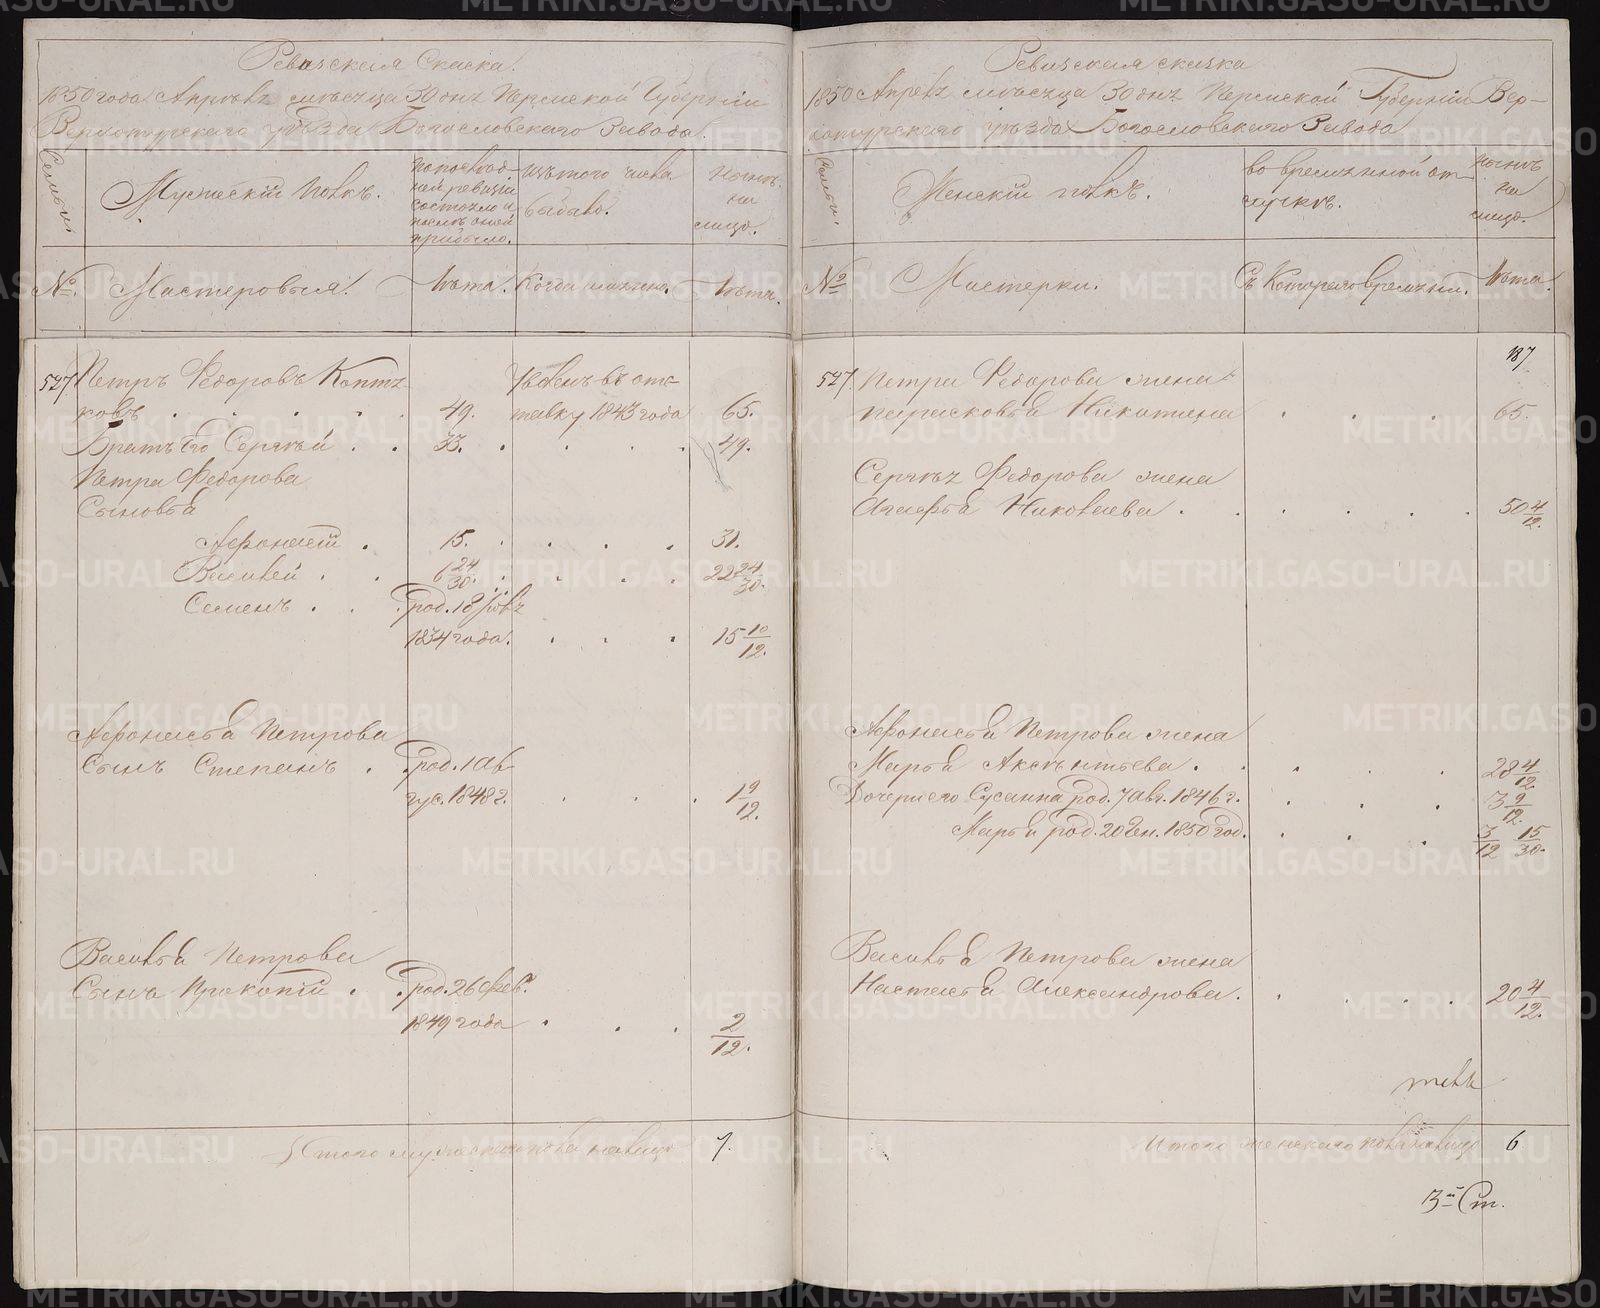 Ревизская Сказка.
1850 года Апреля месяца 30 дня Пермской Губернии
Верхотурского уезда Богословского Завода.
Семьи.
Мужеский Полъ.
По последней ревизіи состояло и после оной прибыло.
Изъ того числа выбыло.
Ныне на лицо.
№.
Мастеровыя.
Лета.
Когда именно.
Лета.
527. Петръ Федоровъ Коптя- Уволенъ въ отс-
ковъ . . . . . 49. тавку 1843 года 65.
Братъ Его Сергей . . 33. . . . 49.
Петра Федорова
Сыновья
Афонасій . 15. . . . . 31.
Василей . . 6 24/30. . . . . 22 24/30.
Семенъ . . . род. 18 Іюля
1834 года. . . . 15 10/12.
Афонасья Петрова
Сынъ Степанъ . род. 1 Ав-
гус. 1848 г. . . . 1 9/12.
Василья Петрова
Сынъ Прокопій . . род. 26 Фев.
1849 года . . . 2/12.
Итого мужеска пола на лицо 7.
Ревизская сказка
1850 Апреля месяца 30 дня Пермской Губерніи Вер-
хотурского уезда Богословского Завода
Семьи.
Женскій полъ.
во временной от-
лучке.
Ныне на лицо.
№
Мастерки.
Съ Котораго времени.
Лета.
187
527. Петра Федорова жена
парасковья Никитина . . . 65.
Сергея Федорова жена
Агафья Николаева . . . . . . 50 4/12.
Афонасья Петрова жена
Марья Аксентьева . . . . . 28 4/12.
Дочери его Сусанна род. 7 авг. 1846 г. . . . 3 9/12.
Марья род. 20 Ген. 1850 год. . . . 3/12 15/30.
Василья Петрова жена
Настасья Александрова. . . . . 20 4/12.
Итого женского пола на лицо 6
3й Ст.
METRIKI.GASO-URAL.RU